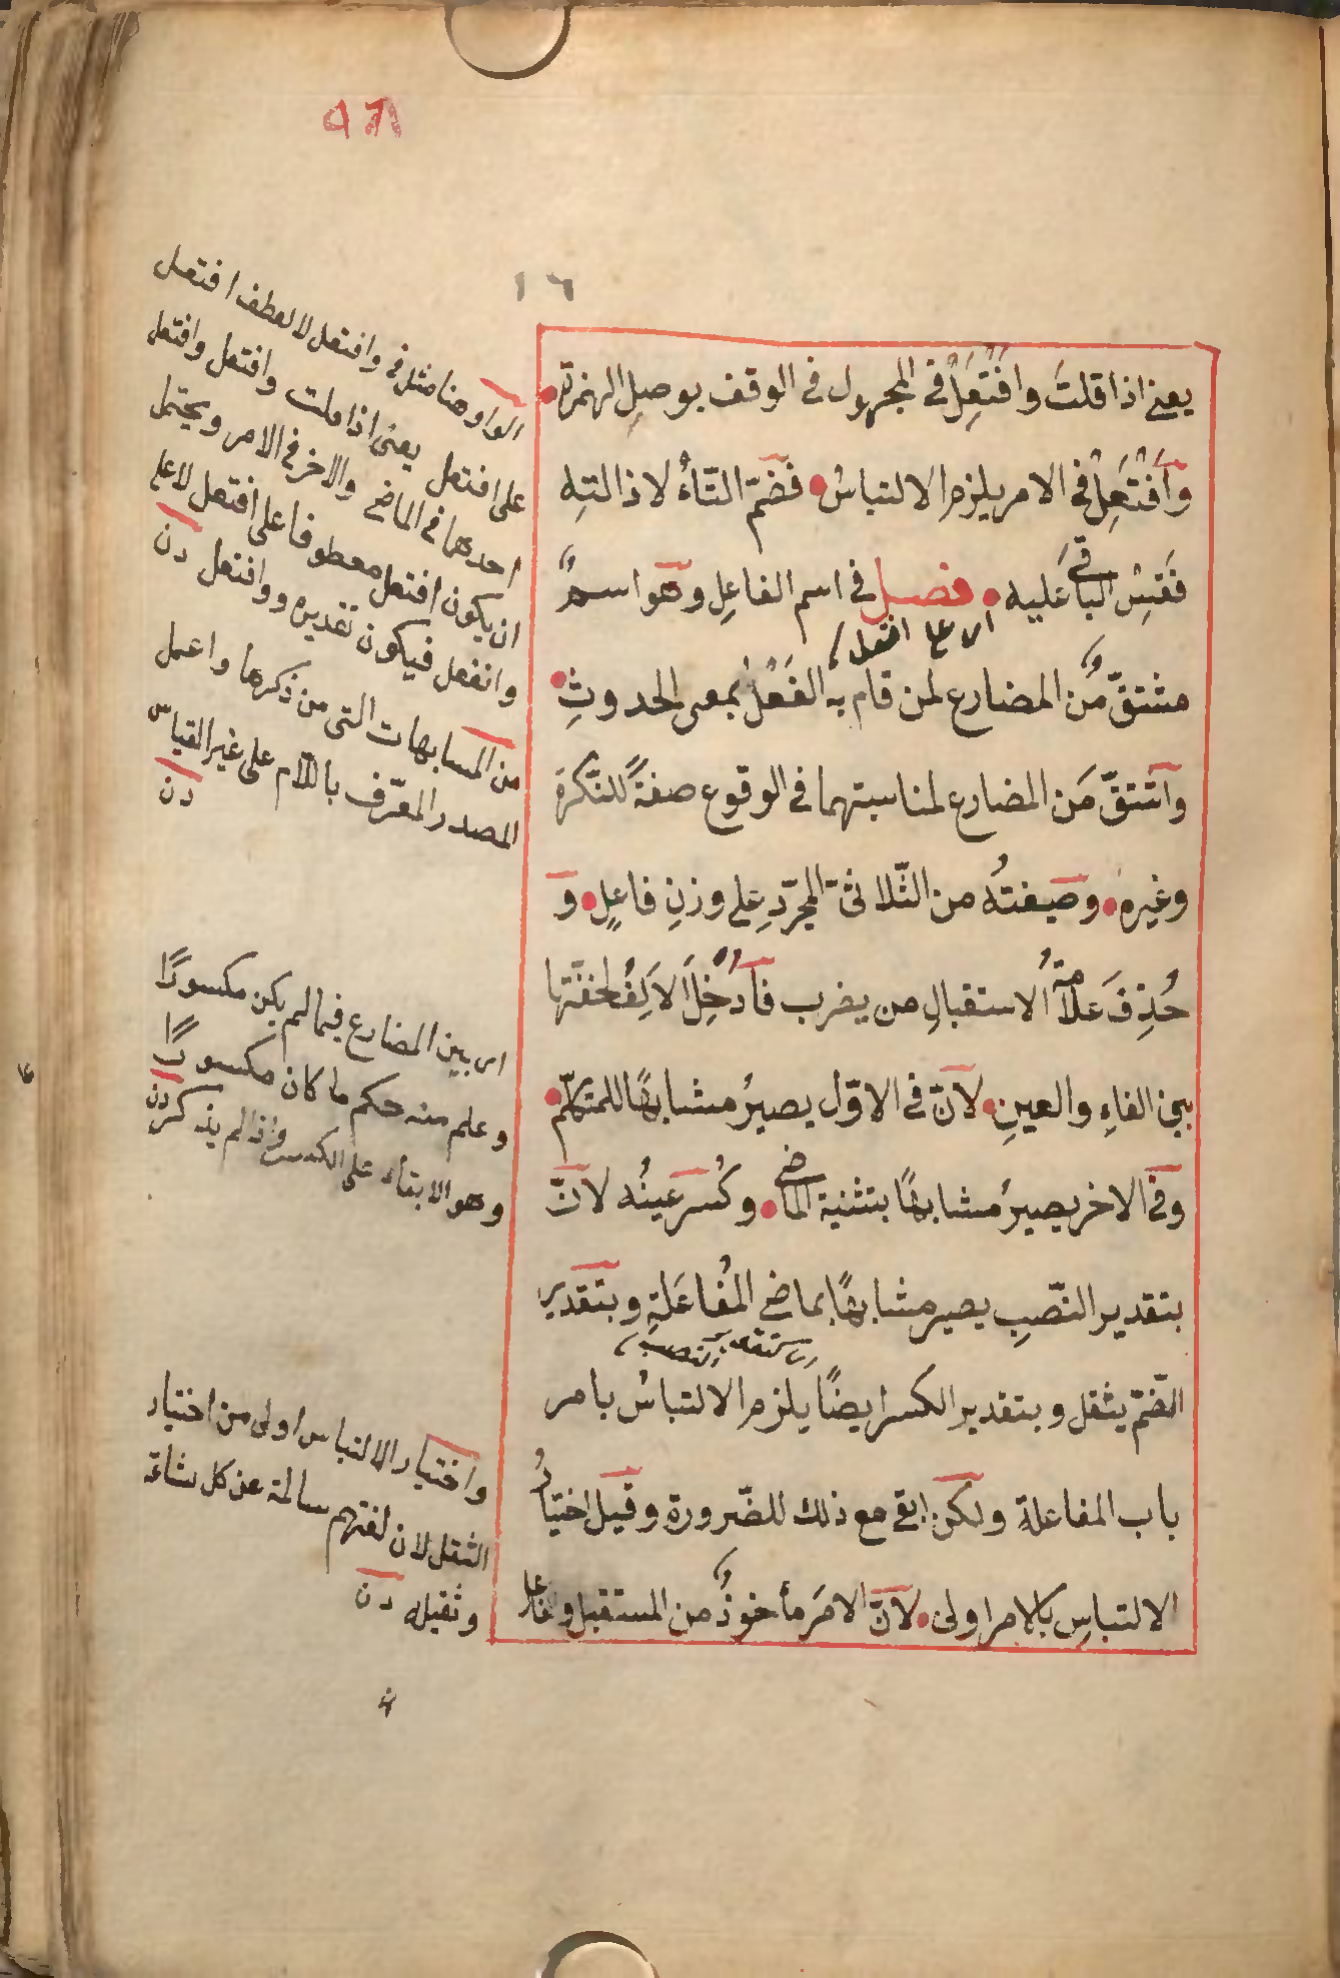 ١٦
يعنى اذا قلتَ وافْتُعِلْ فى المجهول فى الوقف بوصلِ الهمزة
وَافْتَعِلْ فى الامر يلزم الالتباسُ فضمّ التّاءُ لازالتِه
فَقِسْ الباقى عَليه فصل فى اسم الفاعِلِ وهو اسمٌ
مشتقٌّ مّن المضارع لمن قام به الفِعْلُ بمعنى الحدوثِ
واشتقّ مَن المضارع لمناسبتهما فى الوقوع صفةً للنّكرة
وغيره وصيغتُه من الثّلاثىّ المجرّدِ على وزنِ فاعِلٍ وَ
حُذِفَ عَلامةُ الاستقبالِ من يضرب فاُدْخِلَ الاَلِفُ لخفّتها
بين الفاءِ والعينِ لانّ فى الاوّل يصيرُ مشابهًا للمتكلّم
وفى الاخر يصيرُ مشابهًا بتثنية الماضى وكُسر عينُه لانّ
بتقدير النّصبِ يصير مشابهًا بماضى المُفاعَلةِ وبتقدير
الضّمّ يثقل وبتقدير الكسر ايضًا يلزم الالتباسُ بامر
باب المفاعلةِ ولكن ابقى مع ذلك للضّرورة وقيل اختيارُ
الالتباسِ بالامر اولى لانّ الامرَ مأخوذٌ من المستقبل
الواو هنا مثل فى وافتعل لا لعطف افتعل
على افتعل يعنى اذا قلت وافتعل وافتعل
احدهما فى الماضى والاخر فى الامر ويحتمل
ان يكون افتعل معطوفا على افتعل لا على
وانفعل فيكون تقديره ووافتعل دن
من المشابهات التى من ذكرها واعمل
المصدر المعرّف باللام على غير القياس
دن
اى بين المضارع فيما لم يكن مكسورًا
وعلم منه حكم ما كان مكسورًا
وهو الابقاء على الكسر واذا لم يذكر دن
واختيار الالتباس اولى من اختيار
الثقل لان لغتهم سالمة عن كل
وثقيله دن